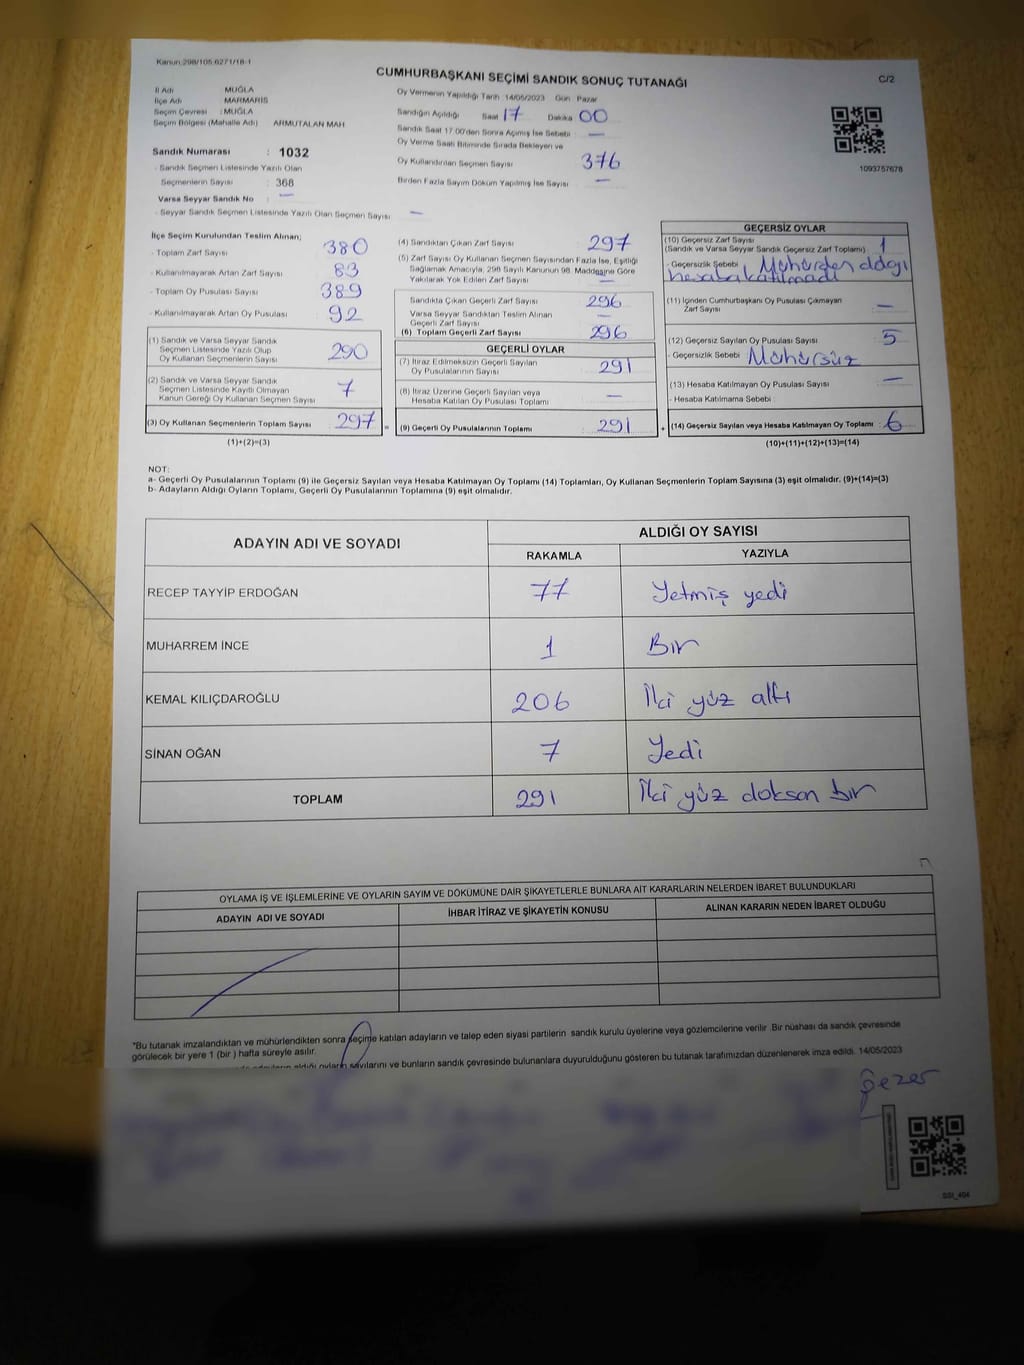 Kanun:298/105,6271/18-1
CUMHURBAŞKANI SEÇİMİ SANDIK SONUÇ TUTANAĞI
C/2
İl Adı : MUĞLA
İlçe Adı : MARMARİS
Seçim Çevresi : MUĞLA
Seçim Bölgesi (Mahalle Adı) ARMUTALAN MAH
Oy Vermenin Yapıldığı Tarih 14/05/2023 Gün Pazar
Sandığın Açıldığı Saat 17 Dakika 00
Sandık Saat 17.00'den Sonra Açılmış İse Sebebi : —
Oy Verme Saati Bitiminde Sırada Bekleyen ve
Oy Kullandırılan Seçmen Sayısı 376
Birden Fazla Sayım Döküm Yapılmış İse Sayısı —
1093757678
Sandık Numarası : 1032
- Sandık Seçmen Listesinde Yazılı Olan
Seçmenlerin Sayısı : 368
Varsa Seyyar Sandık No : —
- Seyyar Sandık Seçmen Listesinde Yazılı Olan Seçmen Sayısı —
İlçe Seçim Kurulundan Teslim Alınan;
- Toplam Zarf Sayısı 380
- Kullanılmayarak Artan Zarf Sayısı 83
- Toplam Oy Pusulası Sayısı 389
- Kullanılmayarak Artan Oy Pusulası 92
(1) Sandık ve Varsa Seyyar Sandık
Seçmen Listesinde Yazılı Olup
Oy Kullanan Seçmenlerin Sayısı 290
(2) Sandık ve Varsa Seyyar Sandık
Seçmen Listesinde Kayıtlı Olmayan
Kanun Gereği Oy Kullanan Seçmen Sayısı 7
(3) Oy Kullanan Seçmenlerin Toplam Sayısı 297 =
(1)+(2)=(3)
(4) Sandıktan Çıkan Zarf Sayısı 297
(5) Zarf Sayısı Oy Kullanan Seçmen Sayısından Fazla İse, Eşitliği
Sağlamak Amacıyla, 298 Sayılı Kanunun 98. Maddesine Göre
Yakılarak Yok Edilen Zarf Sayısı —
Sandıkta Çıkan Geçerli Zarf Sayısı 296
Varsa Seyyar Sandıktan Teslim Alınan
Geçerli Zarf Sayısı —
(6) Toplam Geçerli Zarf Sayısı 296
GEÇERLİ OYLAR
(7) İtiraz Edilmeksizin Geçerli Sayılan
Oy Pusulalarının Sayısı 291
(8) İtiraz Üzerine Geçerli Sayılan veya
Hesaba Katılan Oy Pusulası Toplamı —
(9) Geçerli Oy Pusulalarının Toplamı 291 +
GEÇERSİZ OYLAR
(10) Geçersiz Zarf Sayısı : 1
(Sandık ve Varsa Seyyar Sandık Geçersiz Zarf Toplamı)
- Geçersizlik Sebebi Mühürden
hesaba katılmadı
(11) İçinden Cumhurbaşkanı Oy Pusulası Çıkmayan
Zarf Sayısı : —
(12) Geçersiz Sayılan Oy Pusulası Sayısı : 5
- Geçersizlik Sebebi Mühürsüz
(13) Hesaba Katılmayan Oy Pusulası Sayısı : —
- Hesaba Katılmama Sebebi :
(14) Geçersiz Sayılan veya Hesaba Katılmayan Oy Toplamı : 6
(10)+(11)+(12)+(13)=(14)
NOT:
a- Geçerli Oy Pusulalarının Toplamı (9) ile Geçersiz Sayılan veya Hesaba Katılmayan Oy Toplamı (14) Toplamları, Oy Kullanan Seçmenlerin Toplam Sayısına (3) eşit olmalıdır. (9)+(14)=(3)
b- Adayların Aldığı Oyların Toplamı, Geçerli Oy Pusulalarının Toplamına (9) eşit olmalıdır.
ADAYIN ADI VE SOYADI
ALDIĞI OY SAYISI
RAKAMLA YAZIYLA
RECEP TAYYİP ERDOĞAN 77 Yetmiş yedi
MUHARREM İNCE 1 Bir
KEMAL KILIÇDAROĞLU 206 İki yüz altı
SİNAN OĞAN 7 Yedi
TOPLAM 291 İki yüz doksan bir
OYLAMA İŞ VE İŞLEMLERİNE VE OYLARIN SAYIM VE DÖKÜMÜNE DAİR ŞİKAYETLERLE BUNLARA AİT KARARLARIN NELERDEN İBARET BULUNDUKLARI
ADAYIN ADI VE SOYADI İHBAR İTİRAZ VE ŞİKAYETİN KONUSU ALINAN KARARIN NEDEN İBARET OLDUĞU
*Bu tutanak imzalandıktan ve mühürlendikten sonra seçime katılan adayların ve talep eden siyasi partilerin sandık kurulu üyelerine veya gözlemcilerine verilir .Bir nüshası da sandık çevresinde
görülecek bir yere 1 (bir ) hafta süreyle asılır.
adayların aldığı oyların sayılarını ve bunların sandık çevresinde bulunanlara duyurulduğunu gösteren bu tutanak tarafımızdan düzenlenerek imza edildi. 14/05/2023
SSI_404